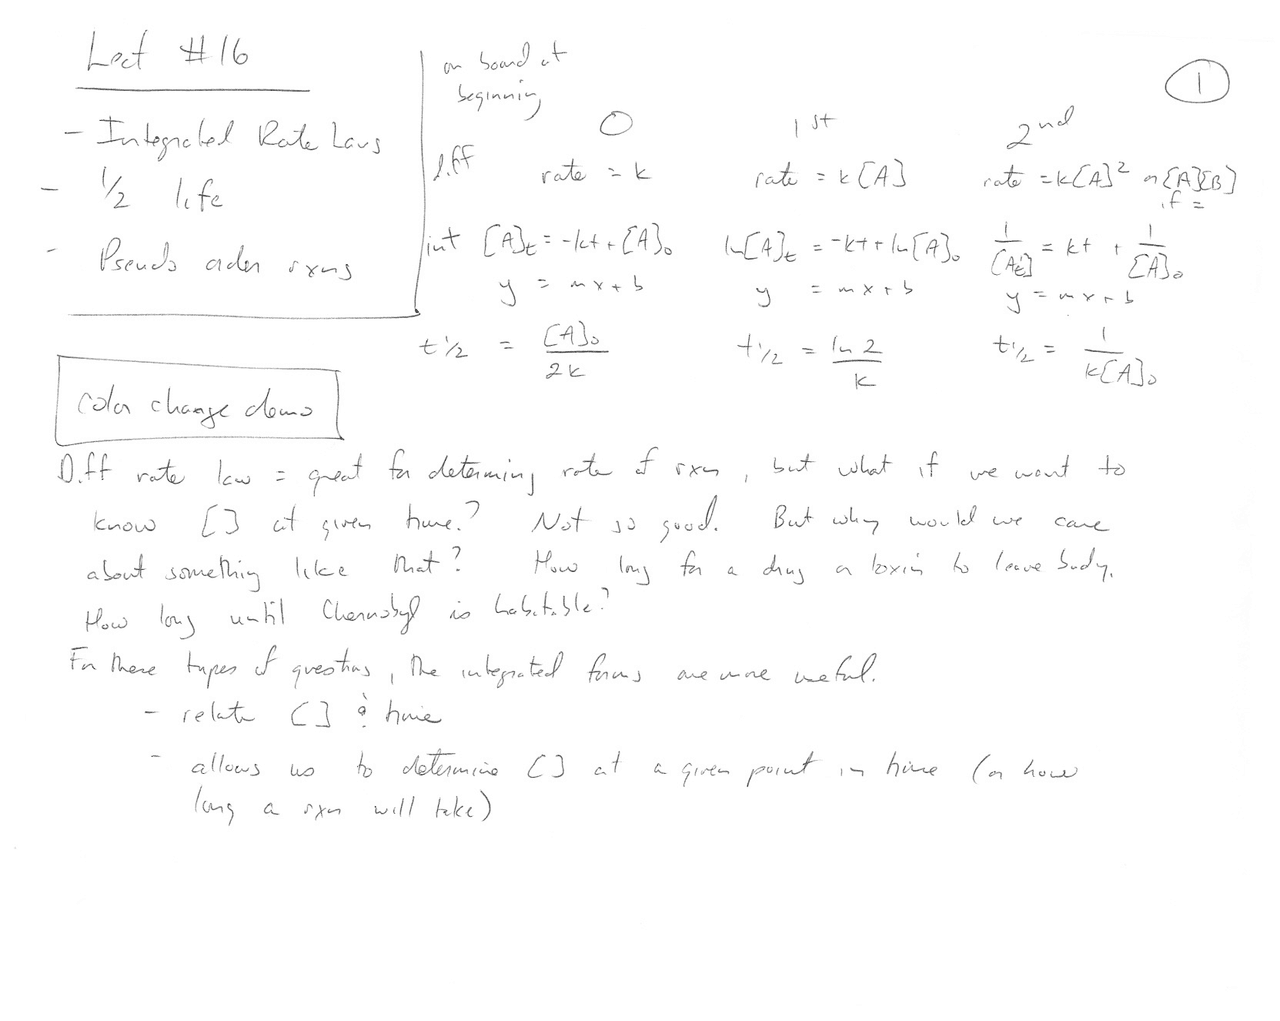 Lect #16
- Integrated Rate Laws
- 1/2 life
- Pseudo order rxns
on board at
beginning
1
0 1st 2nd
diff rate = k rate = k[A] rate = k[A]² or [A][B]
if =
int [A]t = -kt + [A]₀ ln[A]t = -kt + ln[A]₀ 1/[A]t = kt + 1/[A]₀
y = mx + b y = mx + b y = mx + b
t½ = [A]₀/2k t½ = ln 2/k t½ = 1/k[A]₀
Color change demo
Diff rate law = great for determing rate of rxn, but what if we want to
know [ ] at given time? Not so good. But why would we care
about something like that? How long for a drug or toxin to leave body.
How long until Chernobyl is habitable?
For these types of questions, the integrated forms are more useful.
- relate [ ] & time
- allows us to determine [ ] at a given point in time (or how
long a rxn will take)